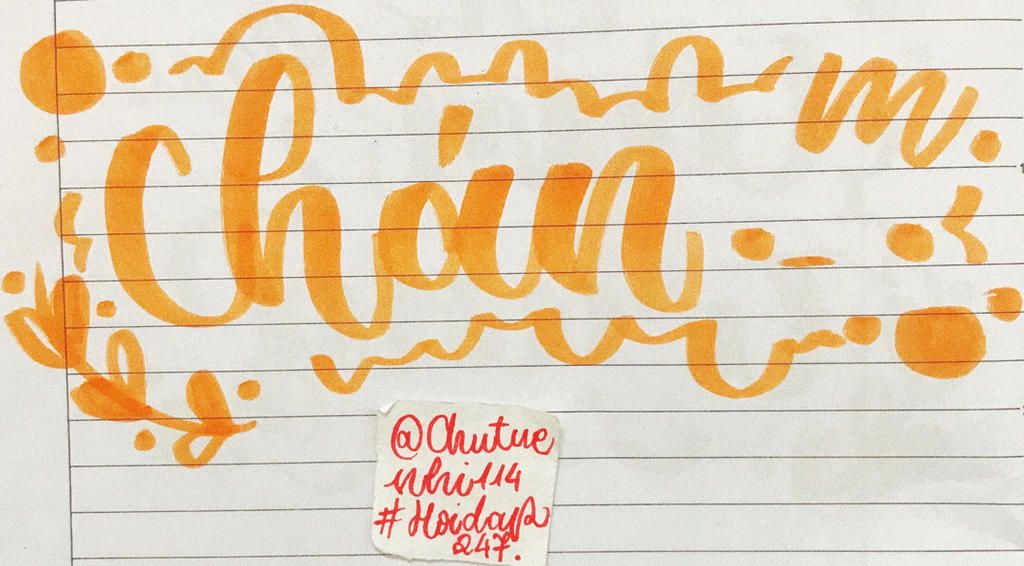 Chán
m.
@Chutue
nhi114
#Hoidap
247.